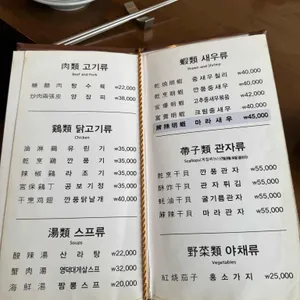 肉類 고기류
Beef and Pork
糖醋肉 탕수육 ₩22,000
炒肉兩張皮 양장피 ₩38,000
鷄類 닭고기류
Chicken
油淋鷄 유린기 ₩35,000
乾烹鷄 깐풍기 ₩35,000
辣椒鷄 라조기 ₩35,000
宮保鷄丁 공보기정 ₩35,000
干烹鸡翅 깐풍닭날개 ₩40,000
湯類 스프류
Soups
酸辣湯 산라탕 ₩22,000
蟹肉湯 영덕대게살스프 ₩32,000
海鮮湯 짬뽕스프 ₩20,000
蝦類 새우류
Prawn and Shrimp
중새우칠리 ₩40,000
乾烹明蝦 깐풍중새우 ₩40,000
宮爆明蝦 고추중새우볶음 ₩42,000
富貴明蝦 크림중새우 ₩40,000
麻辣明蝦 마라새우 ₩45,000
帶子類 관자류
乾烹干貝 깐풍관자 ₩55,000
酥炸干貝 관자튀김 ₩55,000
蚝油干貝 굴기름관자 ₩55,000
麻辣干貝 마라관자 ₩55,000
野菜類 야채류
Vegetables
紅燒茄子 홍소가지 ₩25,000